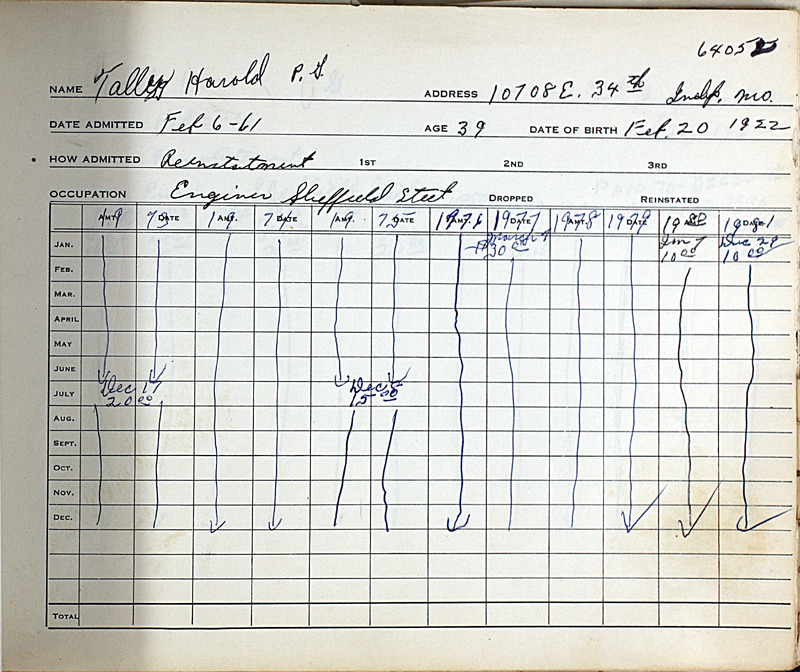 64052
NAME Talley Harold P. G ADDRESS 10708 E. 34th Indp. Mo.
DATE ADMITTED Feb 6-61 AGE 39 DATE OF BIRTH Feb. 20 1922
HOW ADMITTED Reinstatement 1ST 2ND 3RD
OCCUPATION Enginer Sheffield Steel DROPPED REINSTATED
AMT. 73 DATE 19 AMT. 74 DATE 19 AMT. 75 DATE 1976 AMT. 1977 DATE 1978 AMT. 1979 DATE 1980 AMT. 1981 DATE
JAN. March 9 30 00 Jan 7 10 00 Dec 28 10 00
FEB.
MAR.
APRIL
MAY
JUNE
JULY Dec 17 20 00 Dec 8 15 00
AUG.
SEPT.
OCT.
NOV.
DEC.
TOTAL